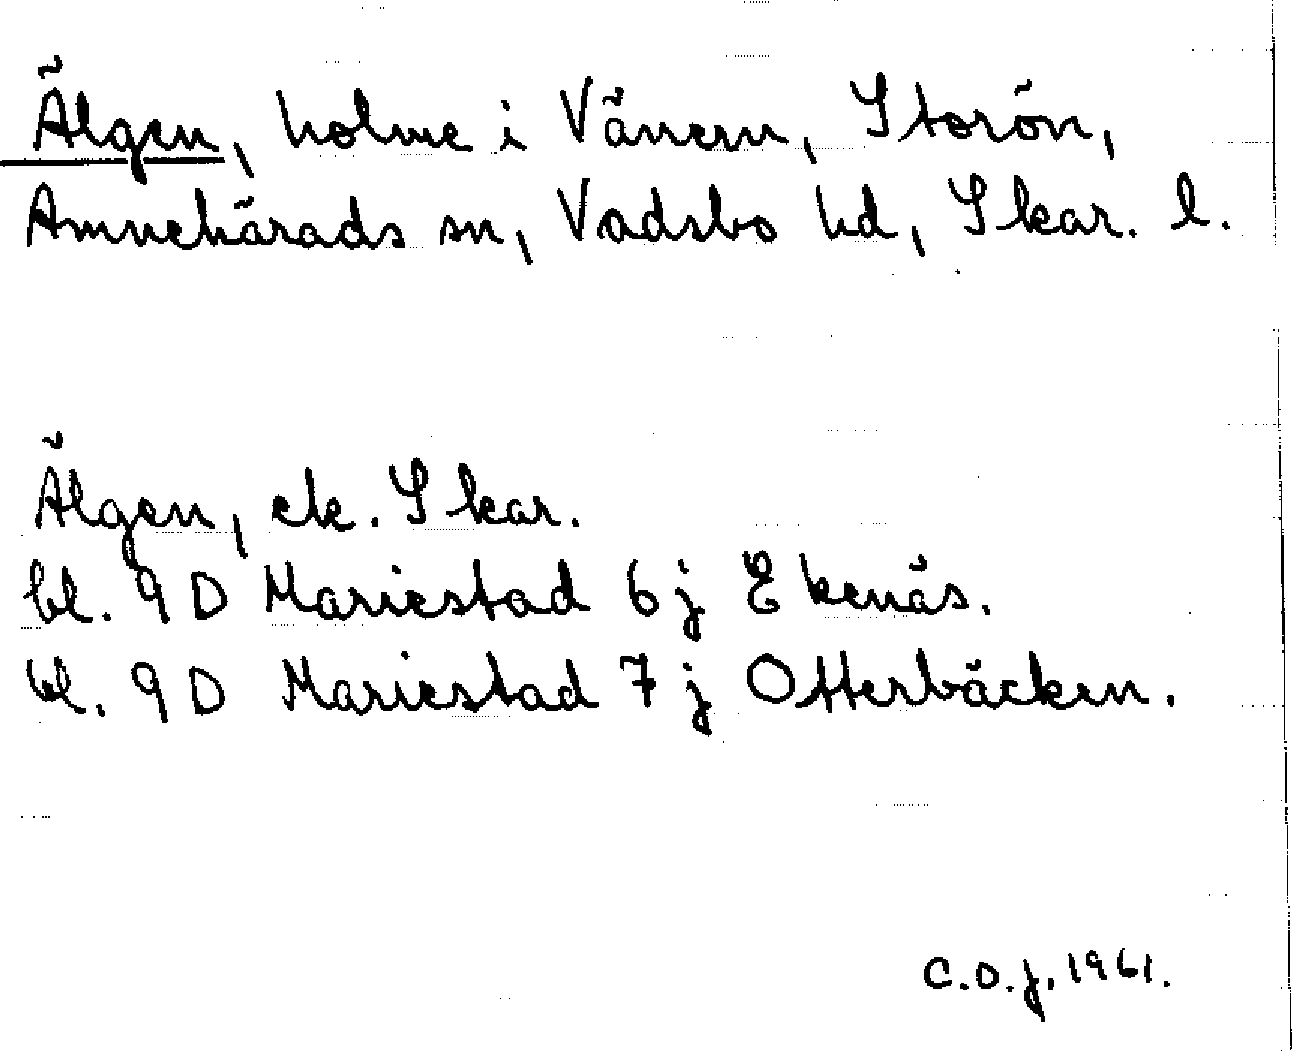 Älgen, holme i Vänern, Storön,
Amnehärads sn, Vadsbo hd, Skar. l.
Älgen, ek. Skar.
bl. 9D Mariestad 6 j Ekenäs.
bl. 9D Mariestad 7 j Otterbäcken.
C.O.J. 1961.